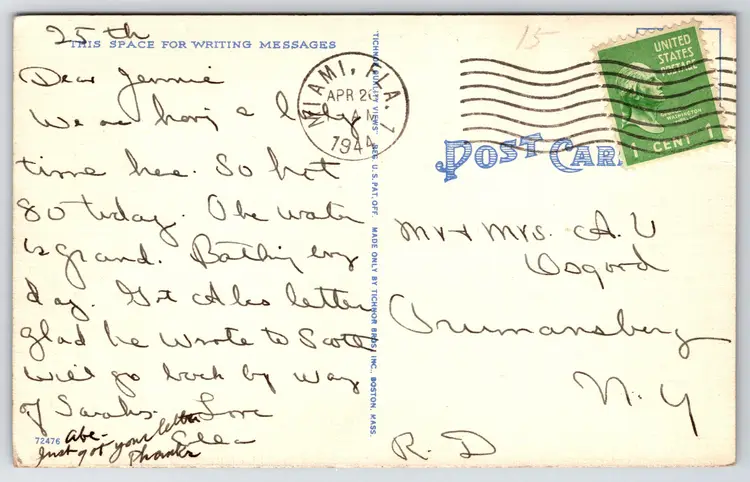 25th
THIS SPACE FOR WRITING MESSAGES
Dear Jennie
We are having a lovely
time here. So hot
80 today. The water
is grand. Bathing every
day. Got Abes letter
glad he wrote to Scott
will go back by way
of Sarahs. Love
Ella
abe-
just got your letter
thanks
72476
TICHNOR QUALITY VIEWS. REG. U.S. PAT. OFF. MADE ONLY BY TICHNOR BROS. INC., BOSTON, MASS.
MIAMI, FLA. 1
APR 26
AM
1944
15
UNITED
STATES
POSTAGE
WASHINGTON
1 CENT 1
POST CAR
Mr & Mrs. A. U
Osgood
Trumansberg
N. Y
R. D